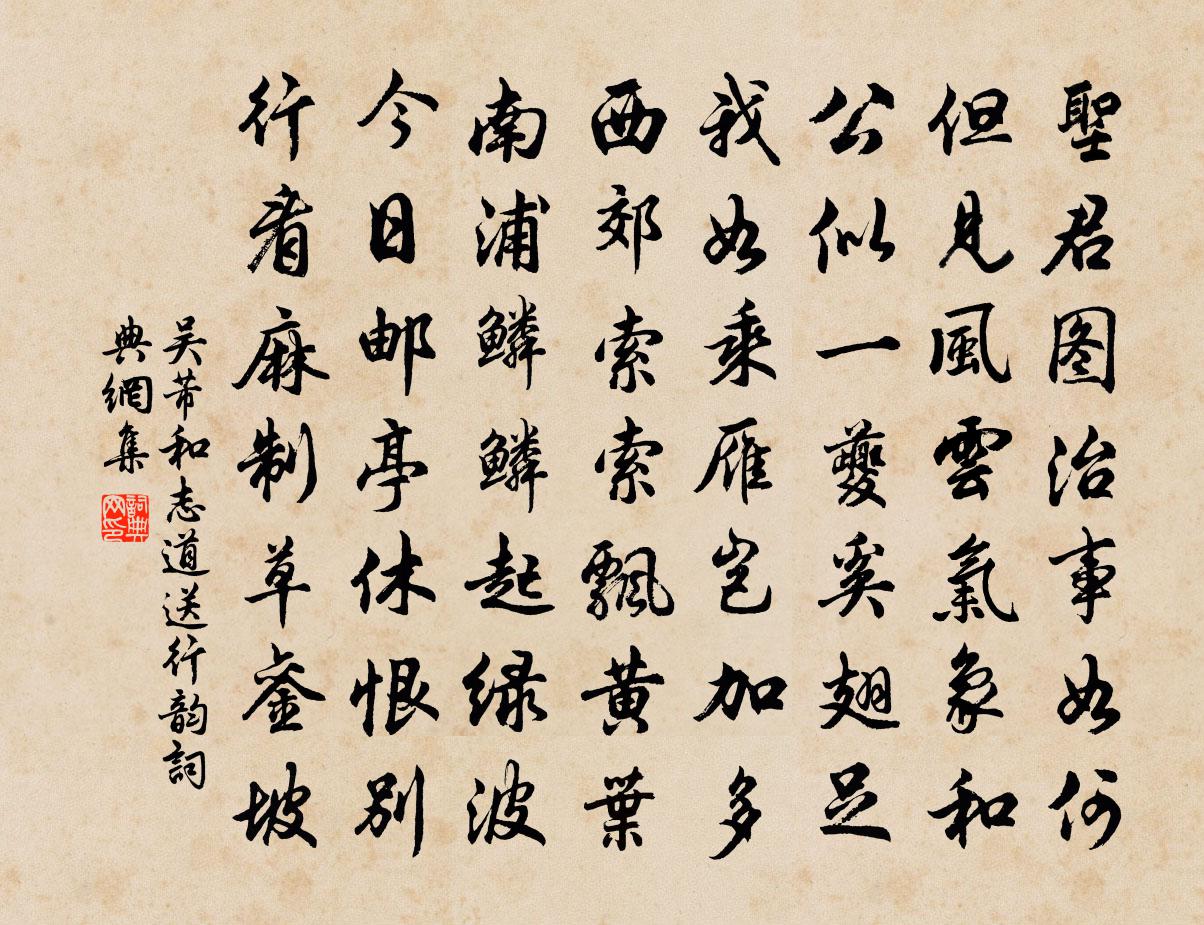 聖君图治事如何
但見風雲氣象和
公似一夔奚翅足
我如乘雁岂加多
西郊索索飄黄葉
南浦鱗鱗起緑波
今日邮亭休恨别
行看麻制草銮坡
吴芾和志道送行韵詞
典網集
詞典网印